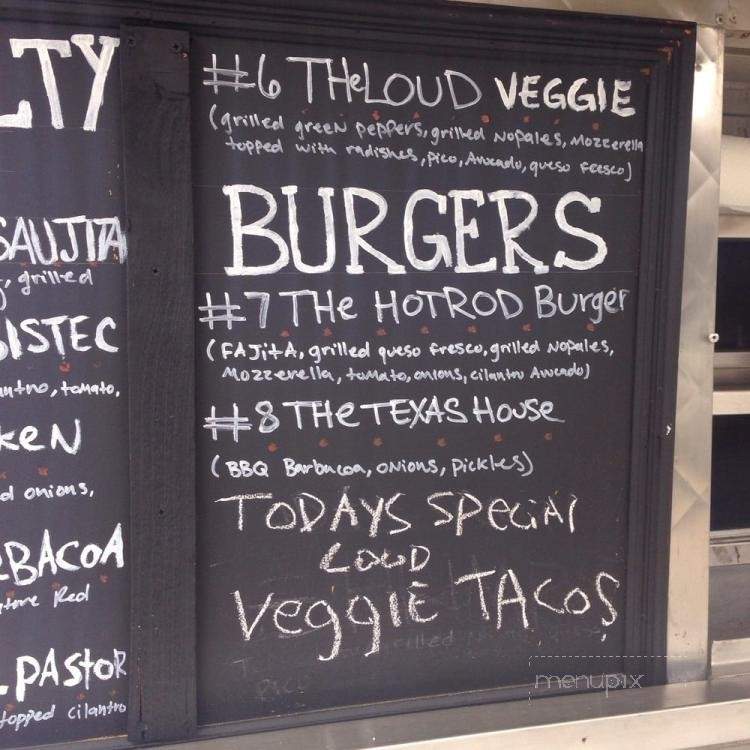 LTY
SAUJITA
grilled
BISTEC
tomato,
KEN
onions,
BACOA
Red
PASTOR
topped cilantro
#6 THe LOUD VEGGIE
(grilled green peppers, grilled Nopales, Mozzerella
topped with radishes, pico, Avocado, queso fresco)
BURGERS
#7 THe HOTROD Burger
(FAJitA, grilled queso fresco, grilled Nopales,
Mozzerella, tomato, onions, cilantro Avocado)
#8 THe TEXAS House
(BBQ Barbacoa, onions, pickles)
TODAYS SPECiAl
LOUD
VeggiE TACOS
menupix